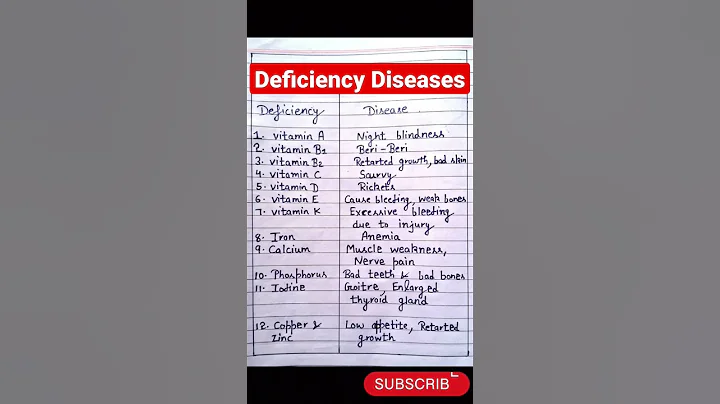 Deficiency Diseases
Deficiency Disease
1. Vitamin A Night blindness
2. Vitamin B1 Beri-Beri
3. Vitamin B2 Retarted growth, bad skin
4. Vitamin C Scurvy
5. Vitamin D Rickets
6. Vitamin E Cause bleeting, weak bones
7. Vitamin K Excessive bleeting
due to injury
8. Iron Anemia
9. Calcium Muscle weakness,
Nerve pain
10. Phosphorus Bad teeth & bad bones
11. Iodine Goitre, Enlarged
thyroid gland
12. Copper & Low appetite, Retarted
Zinc growth
SUBSCRIB